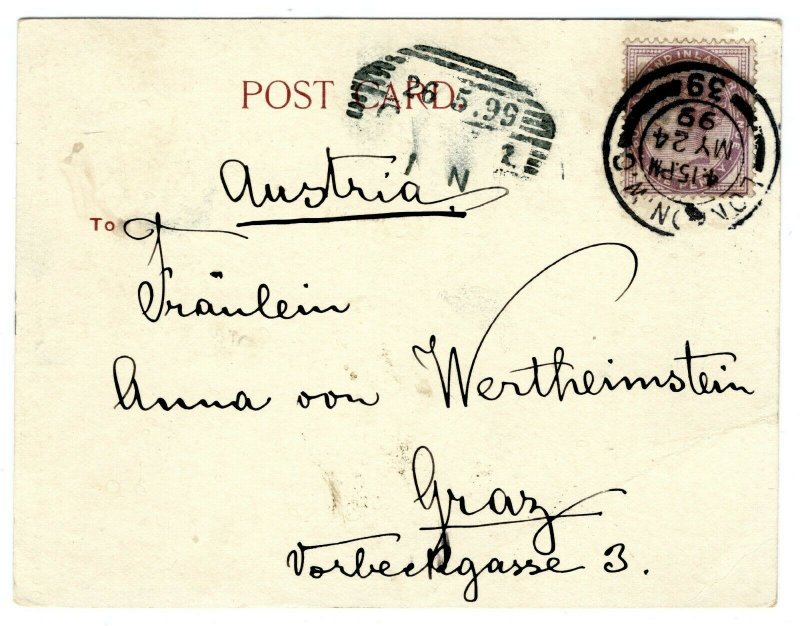 POST CARD.
26 5.99
1 N 2
Austria.
To
Fräulein
Anna von Wertheimstein
Graz
Vorbeckgasse 3.
LONDON.W.C.
4.15.PM
MY 24
99
39